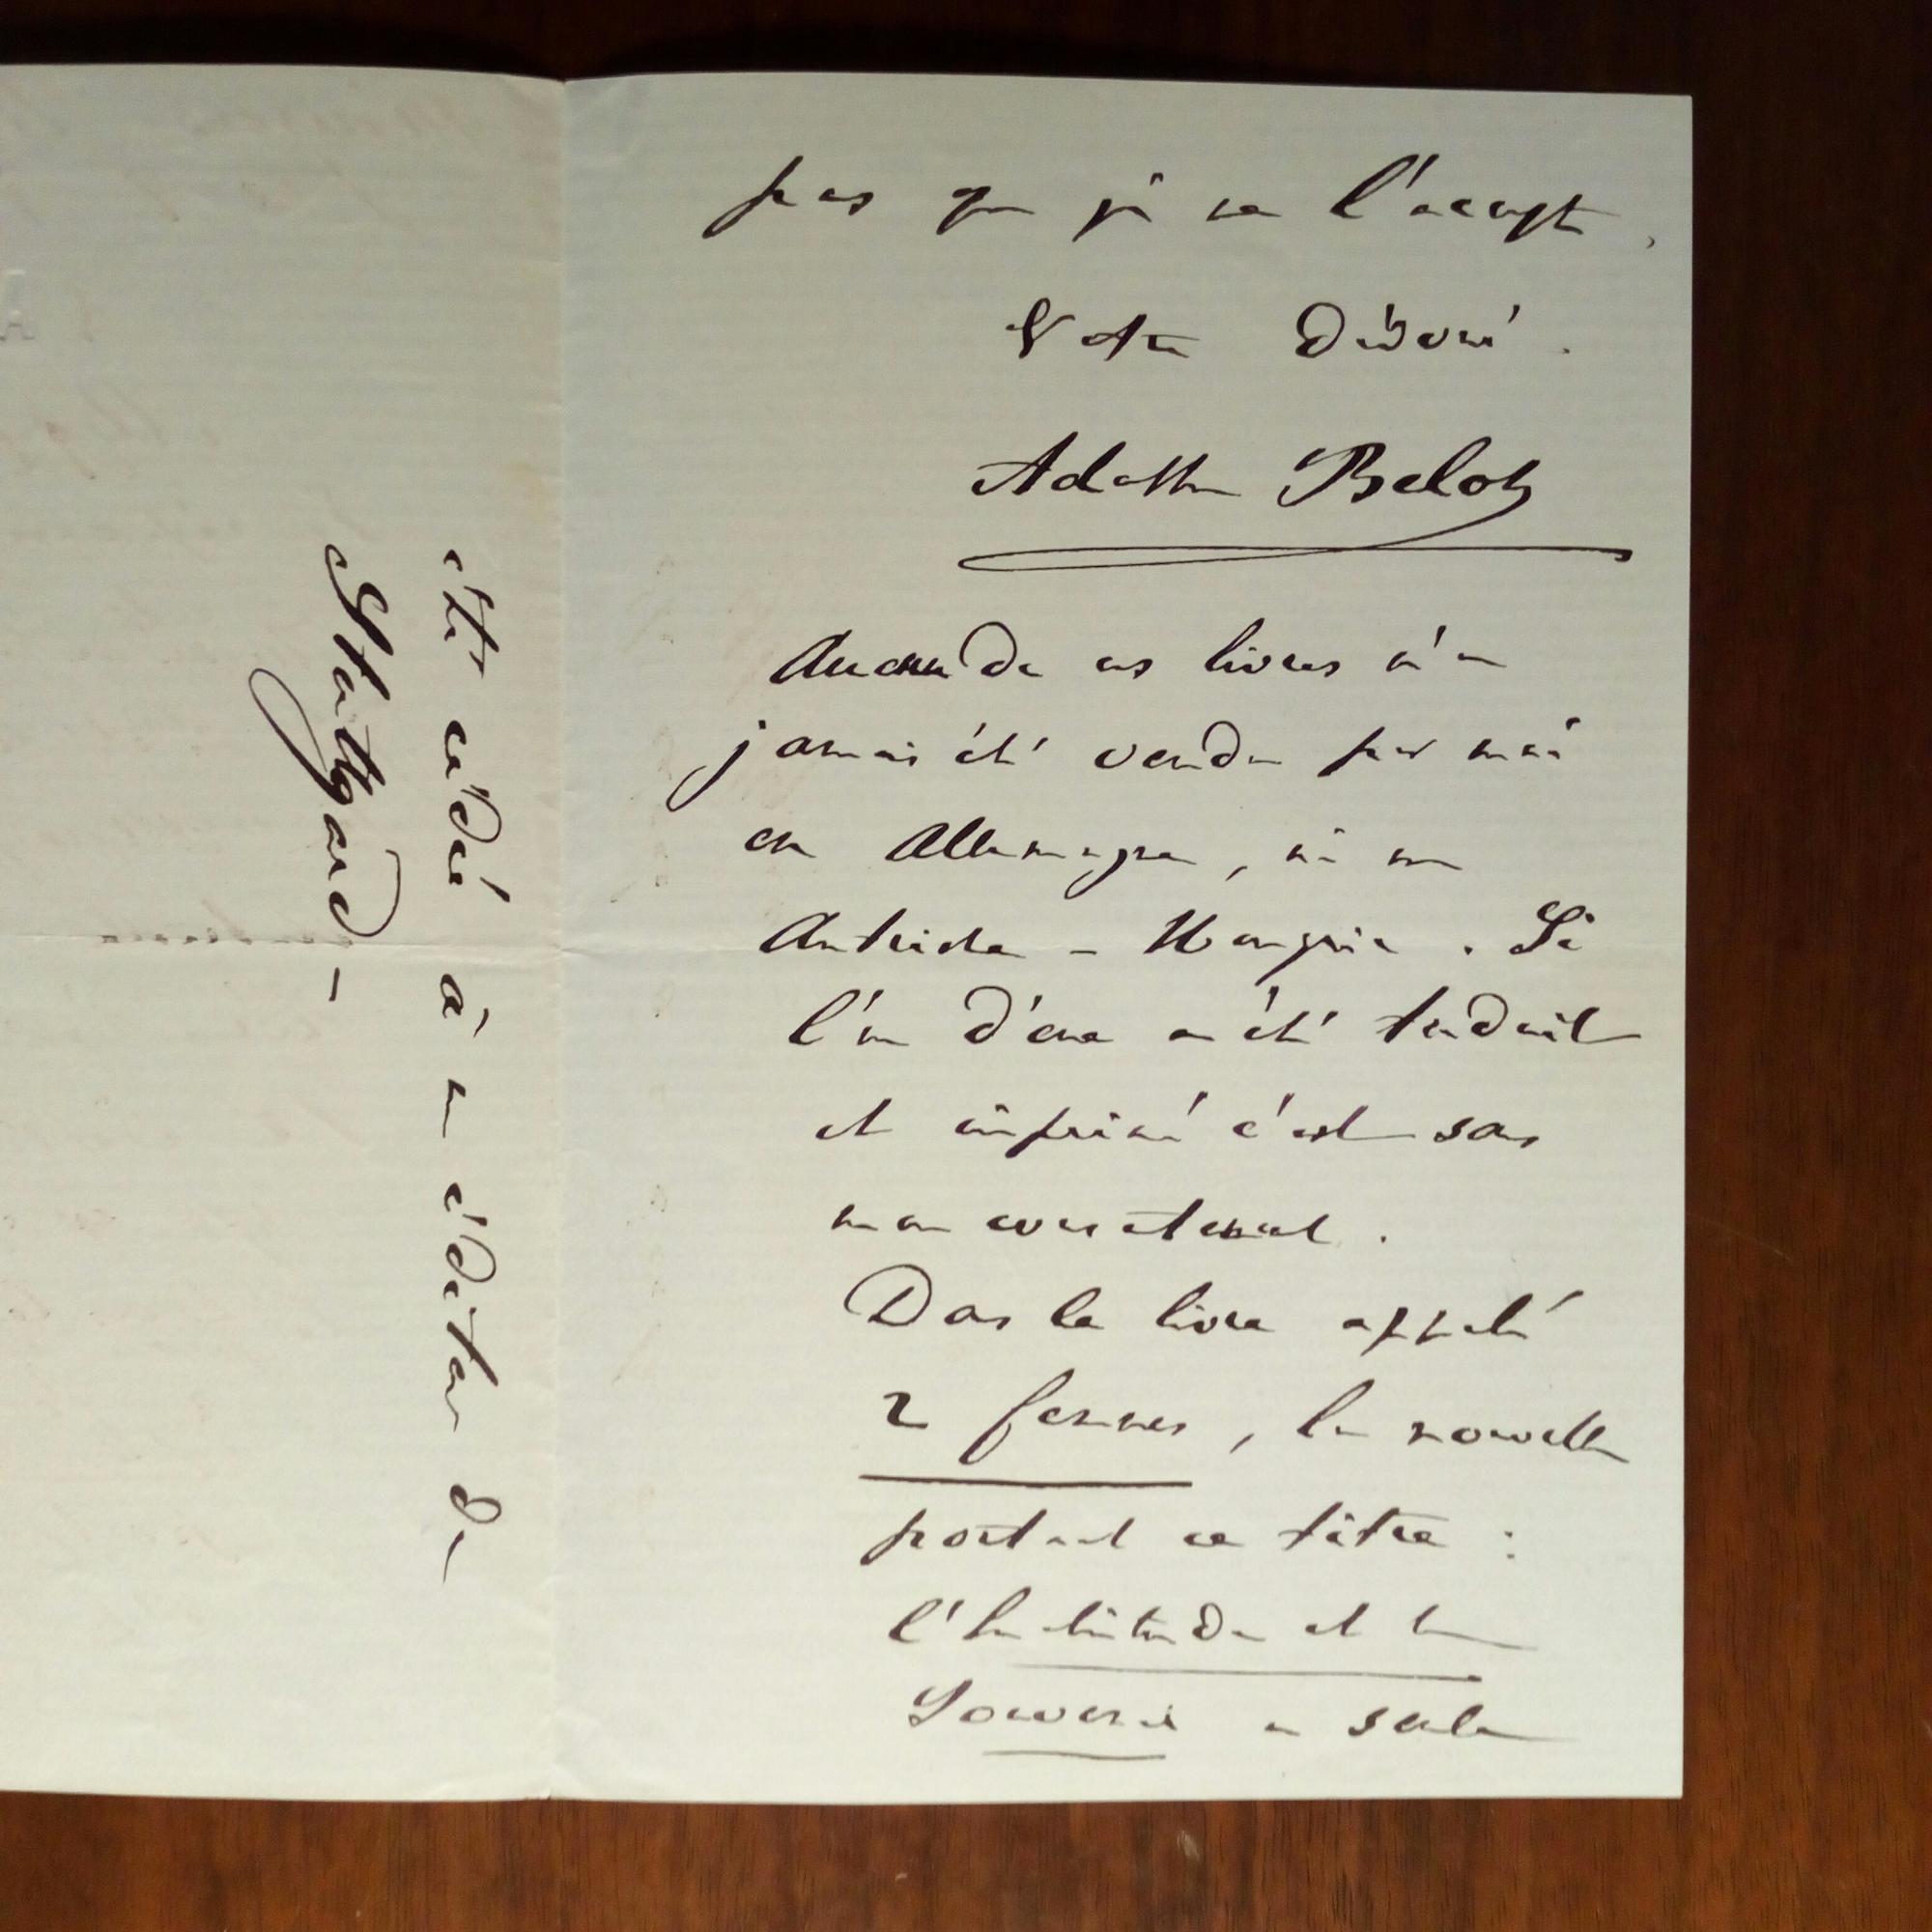 pas que je ne l'accepte,
Votre Dévoué.
Adolphe Belot
Aucun de ces livres n'a
jamais été vendu par moi
en Allemagne, ni en
Autriche - Hongrie. Si
l'un d'eux a été traduit
et imprimé c'est sans
mon consentement.
Dans le livre appelé
2 femmes, la nouvelle
portant ce titre :
l'habitude et le
Souvenir a seule
été cédée à un éditeur de
Stuttgard -